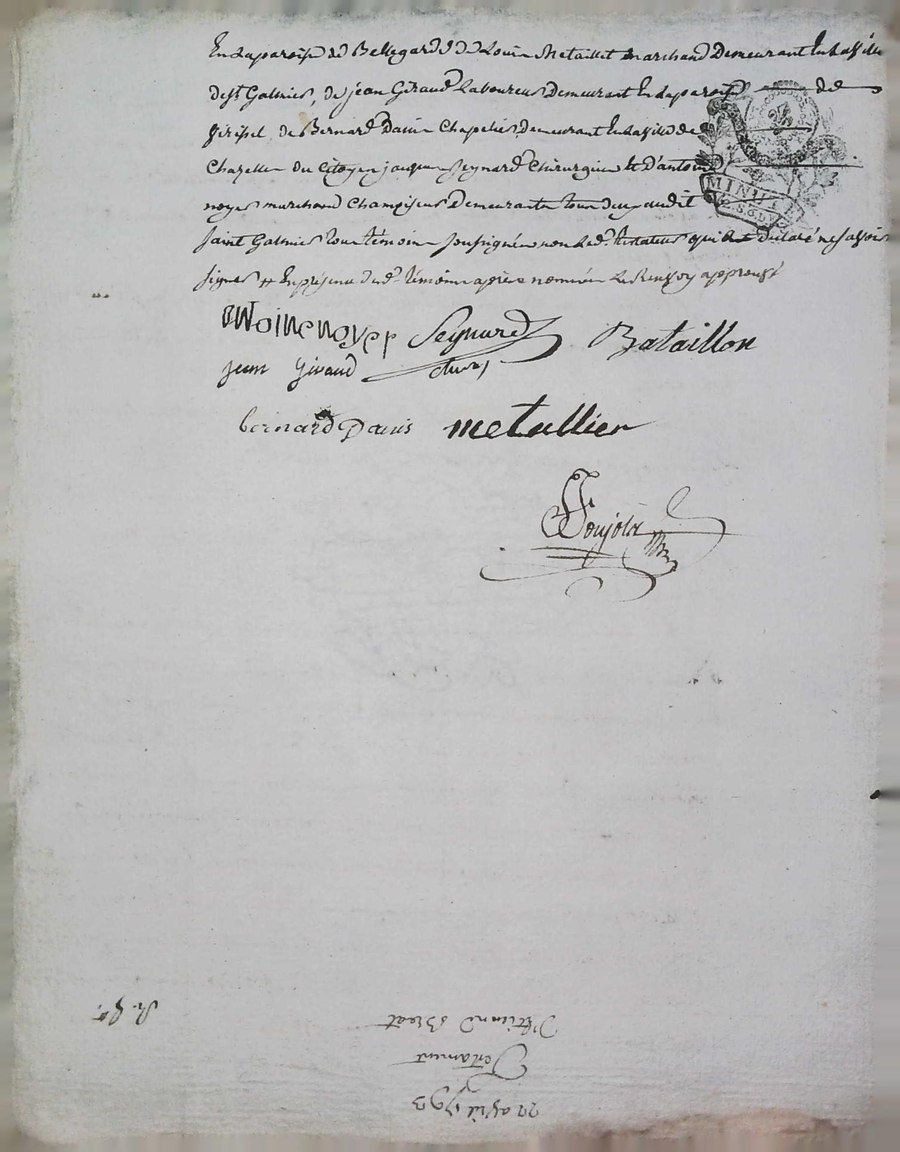 En la paroisse de Bellegarde de Louis Metaillet marchand Demeurant En la ville
de st Galmier, de jean Giraud laboureur Demeurant En la paroisse de
de Bernard Davin Chapelier, demeurant En la ville de
Chazelle du Citoyen jacques Seynard Chirurgien Et D'antoine
noyer marchand Demeurants tous deux audit
MINUTE
Saint Galmier tous témoins soussignés non led. testateur qui a déclaré ne savoir
signer # En présence desd. témoins après nommés Le Renvoy approuvé
Seynard Bataillon
jean giraud chir
bernard Davis metallier
Ptaire
D'Etienne Breat
Testament
22 avril 1793